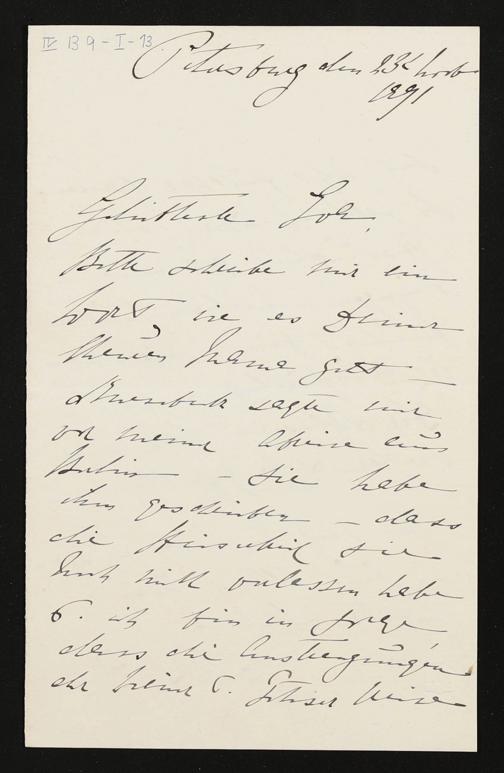 IV B 9 - I - 13
Petersburg den 23t
1891
Geliebteste
Bitte schreibe mir ein
Wort, wie es Deiner
theuren Mama geht
sagte mir
vor meiner Abreise aus
Berlin – Sie habe
ihm geschrieben – dass
die Heiserkeit sie
noch nicht verlassen habe
u. ich bin in Sorge
dass die Anstrengungen
der Reise